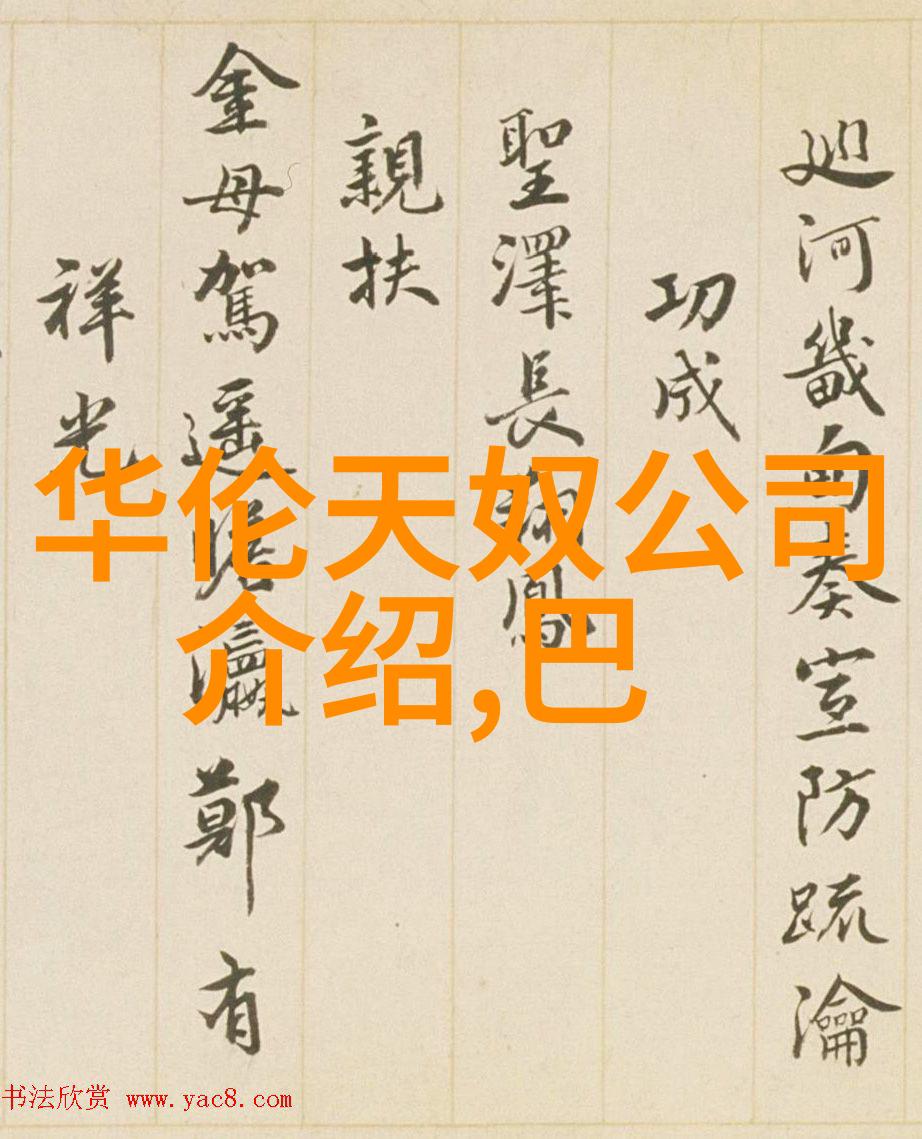 廵河畿甸奏宣防疏瀹
功成
聖澤長翔鳳
親扶
金母駕遥瞻瀛鄭有
祥光
华伦天奴公司
介绍,巴
书法欣赏 www.yac8.com